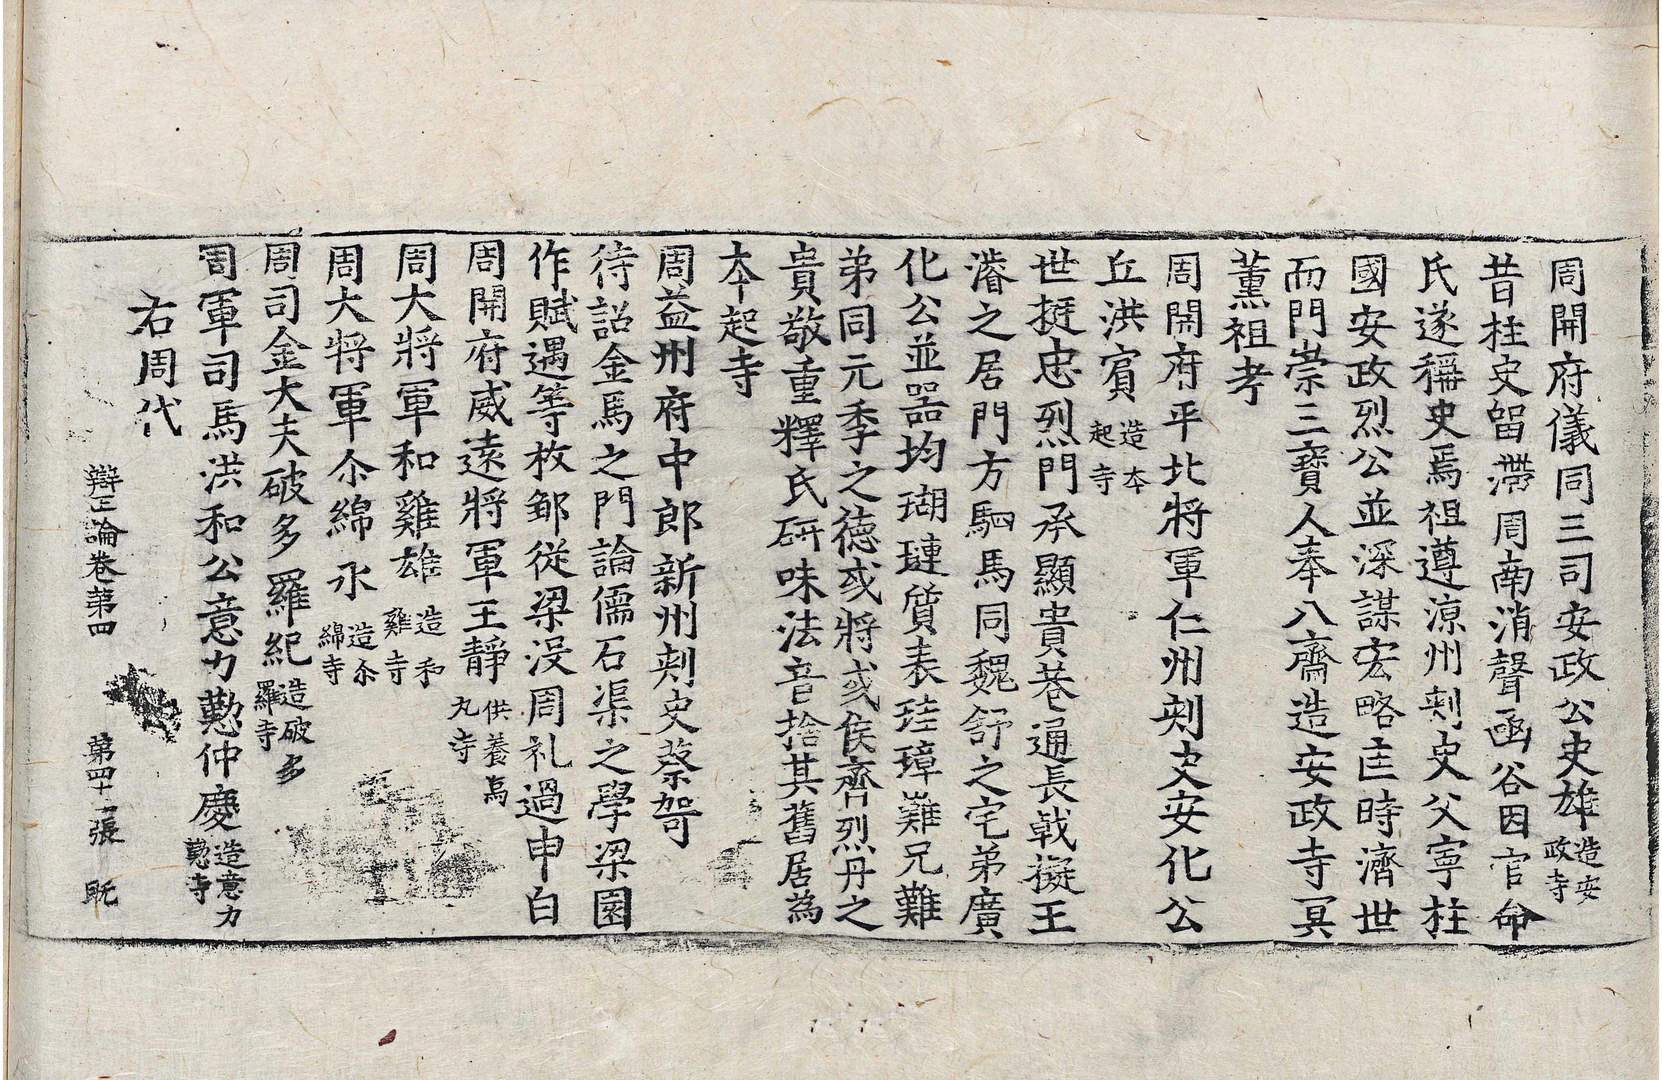 周開府儀同三司安政公史雄造安政寺
昔柱史留滯周南消聲函谷因官命
氏遂稱史焉祖遵涼州刾史父寧柱
國安政烈公並深謀宏略匡時濟世
而門崇三寶人奉八齋造安政寺冥
薰祖考
周開府平北將軍仁州刾史安化公
丘洪賔造夲起寺
世挺忠烈門承顯貴巷通長戟擬王
濬之居門方駟馬同魏舒之宅弟廣
化公並器均瑚璉質表珪璋難兄難
弟同元季之德或將或侯齊烈丹之
貴敬重釋氏研味法音捨其舊居為
夲起寺
周益州府中郎新州刾史蔡㚙
待詔金馬之門論儒石渠之學梁園
作賦遇等枚鄒從梁沒周礼過申白
周開府威遠將軍王靜供養馬丸寺
周大將軍和雞雄造和雞寺
周大將軍尒綿永造尒綿寺
周司金大夫破多羅紀造破多羅寺
周軍司馬洪和公意力懃仲慶造意力懃寺
右周代
辯正論卷第四 第四十一張 既